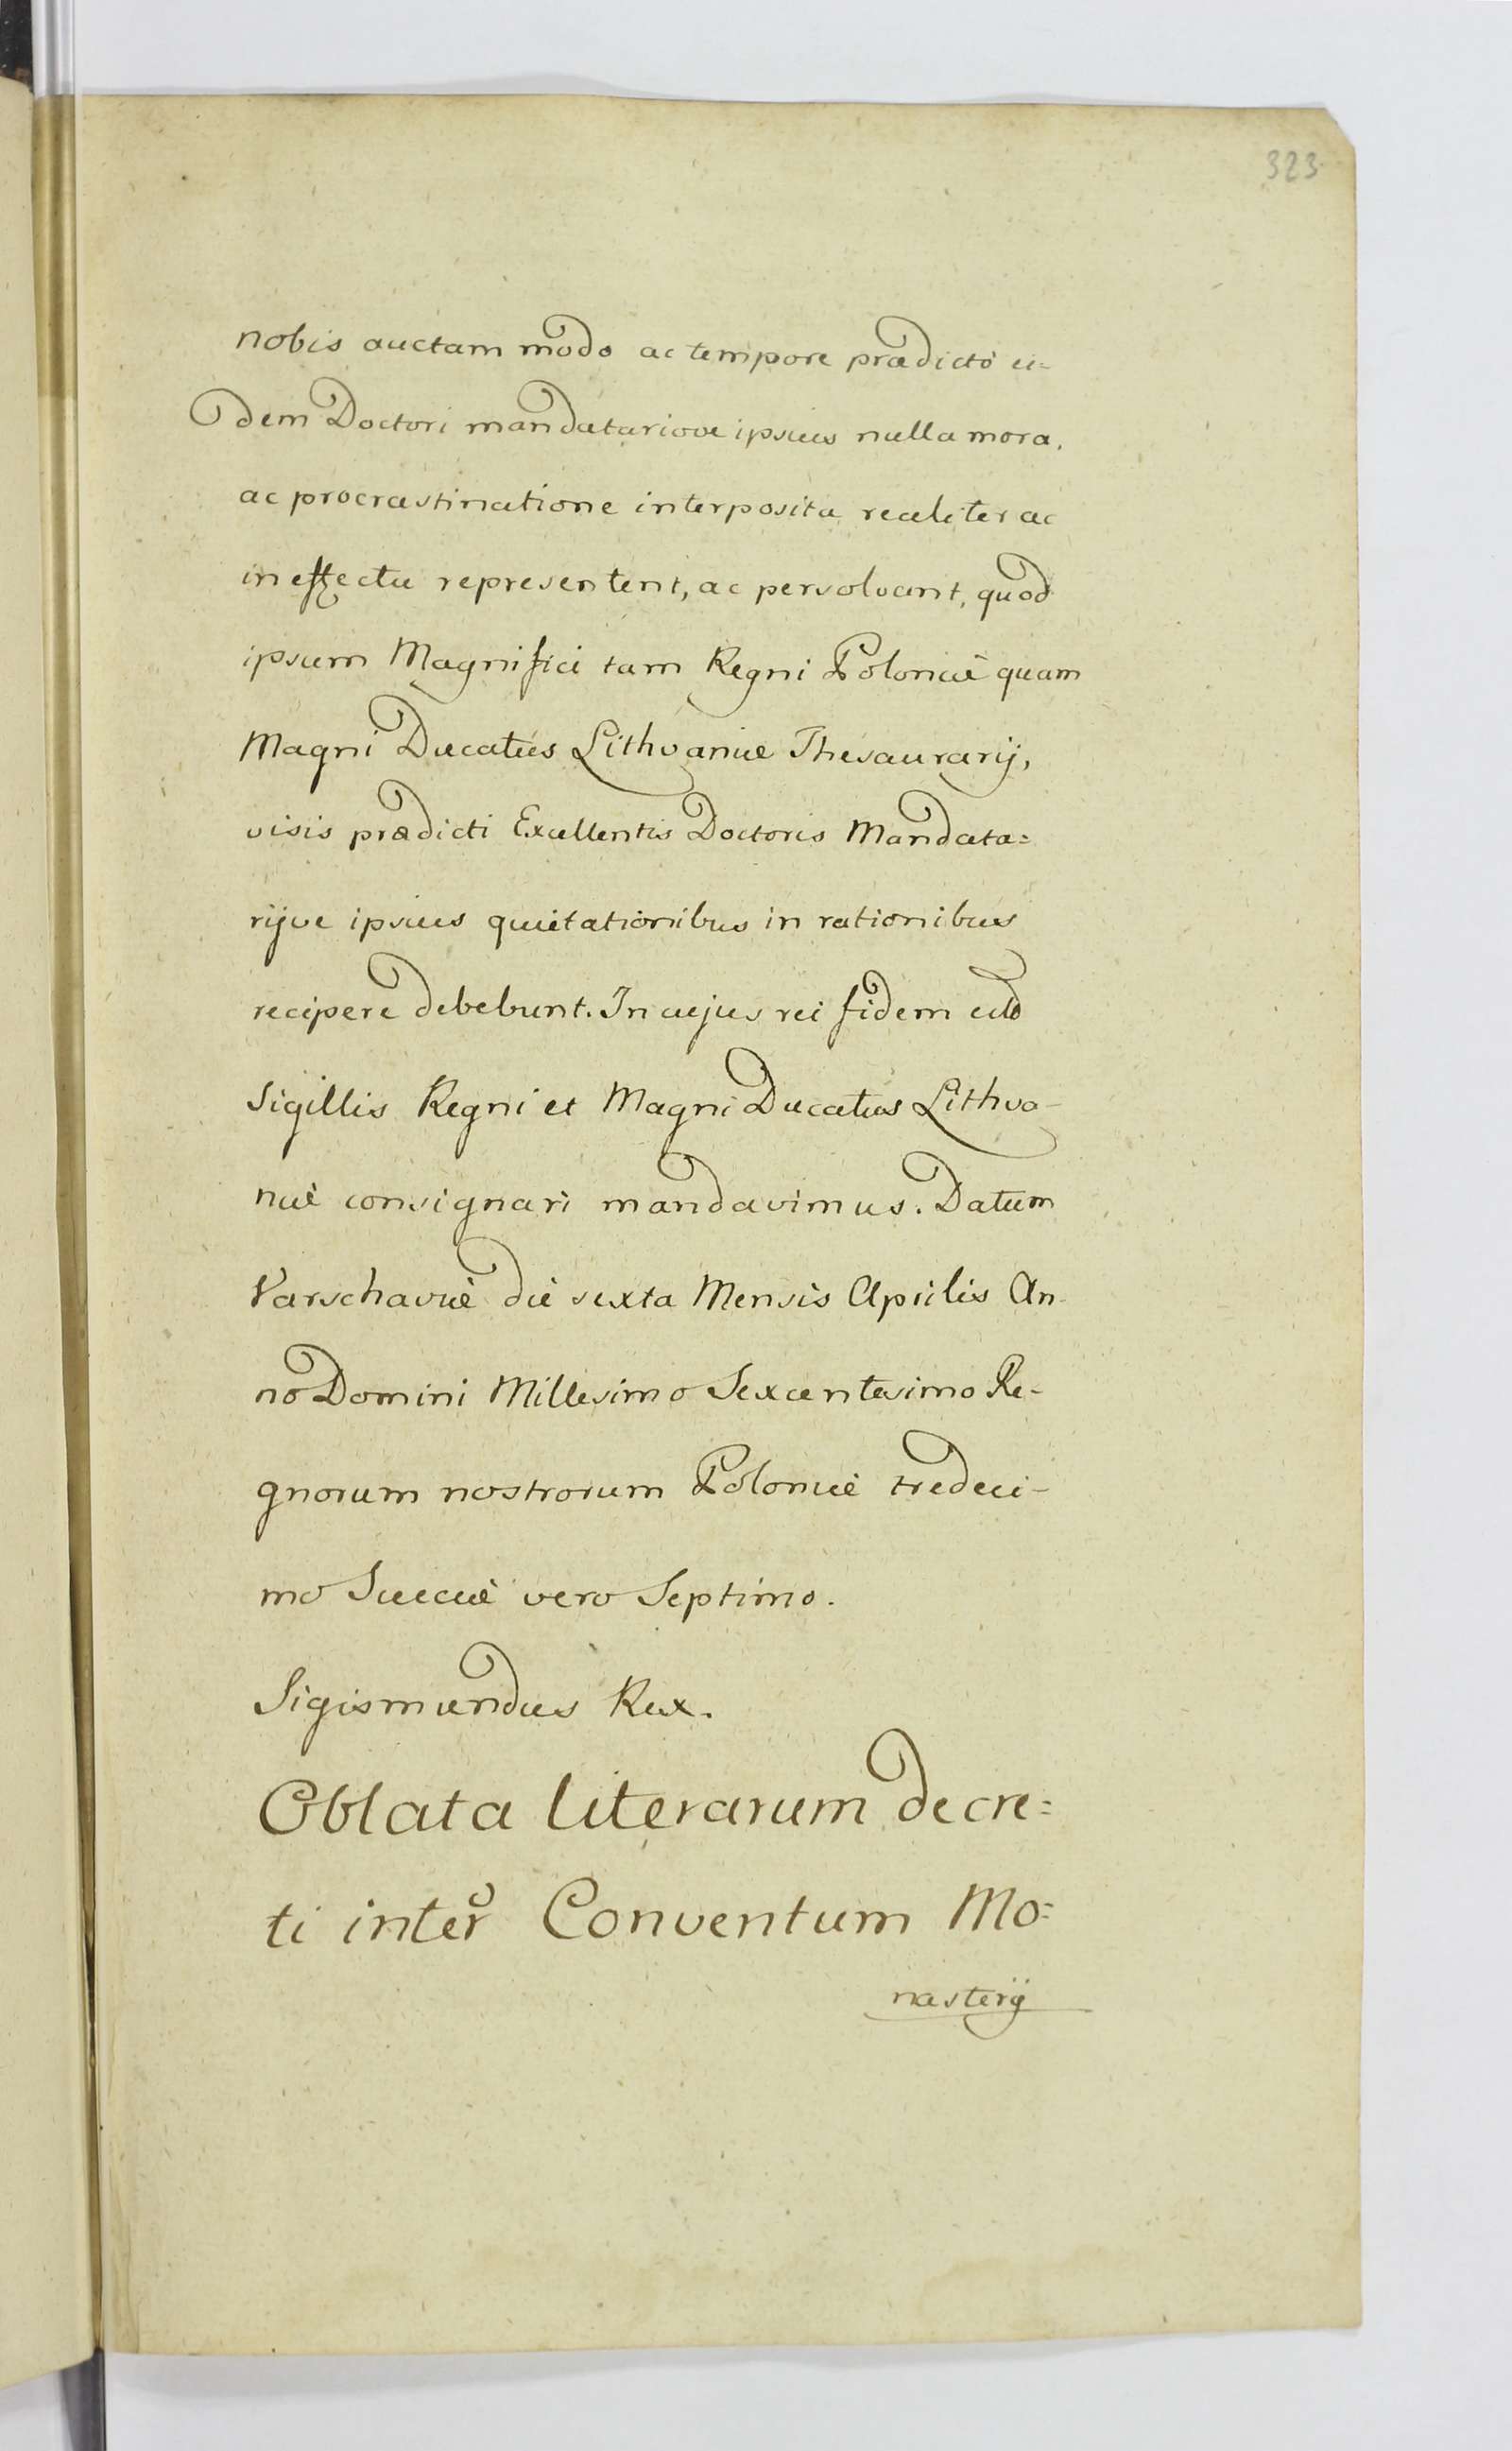 323
nobis auctam modo ac tempore prædicto ei=
dem Doctori mandatariove ipsius nulla mora,
ac procrastinatione interposita realiter ac
in effectu representent, ac persolvant, quod
ipsum Magnifici tam Regni Poloniæ quam
Magni Ducatus Lithvaniæ Thesaurarij,
visis prædicti Excellentis Doctoris Mandata=
rijve ipsius quietationibus in rationibus
recipere debebunt. In cujus rei fidem
Sigillis Regni et Magni Ducatus Lithva-
niæ consignari mandavimus. Datum
Varschaviæ die sexta Mensis Aprilis An-
no Domini Millesimo Sexcentesimo Re-
gnorum nostrorum Poloniæ tredeci-
mo Sueciæ vero Septimo.
Sigismundus Rex.
Oblata literarum decre=
ti inter Conventum Mo=
nasterij